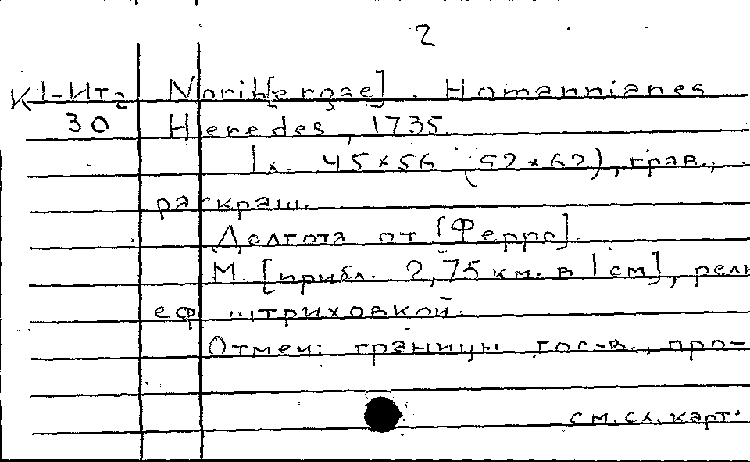 2
К 1-Ит2 Norib[ergae]. Homannianes
30 Heredes, 1735.
1к. 45×56 (52×62), грав.,
раскраш.
Долгота от [Ферро].
М. [прибл. 2,75 км. в 1 см], рель
еф штриховкой.
Отмеч: границы гос-в, про-
см. сл. карт.